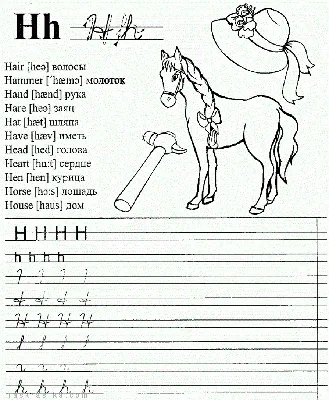 Hh H h
Hair [heə] волосы
Hammer [´hæmə] молоток
Hand [hænd] рука
Hare [heə] заяц
Hat [hæt] шляпа
Have [hæv] иметь
Head [hed] голова
Heart [hɑ:t] сердце
Hen [hen] курица
Horse [hɔ:s] лошадь
House [haus] дом
H H H H
h h h h
H H H H
h h h h